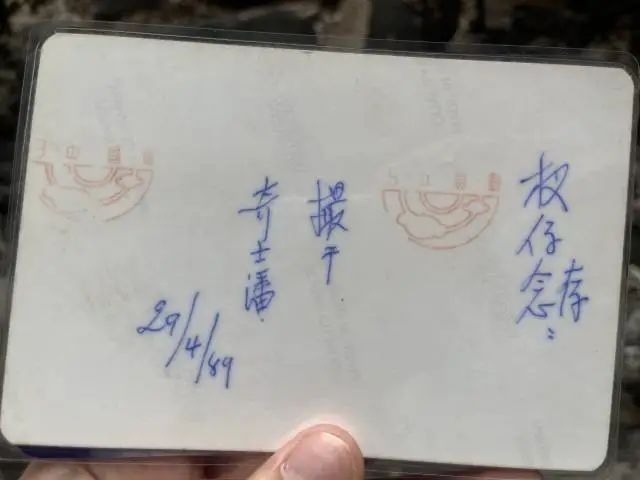 权仔存念:
撮于
奇士潘.
29/4/89